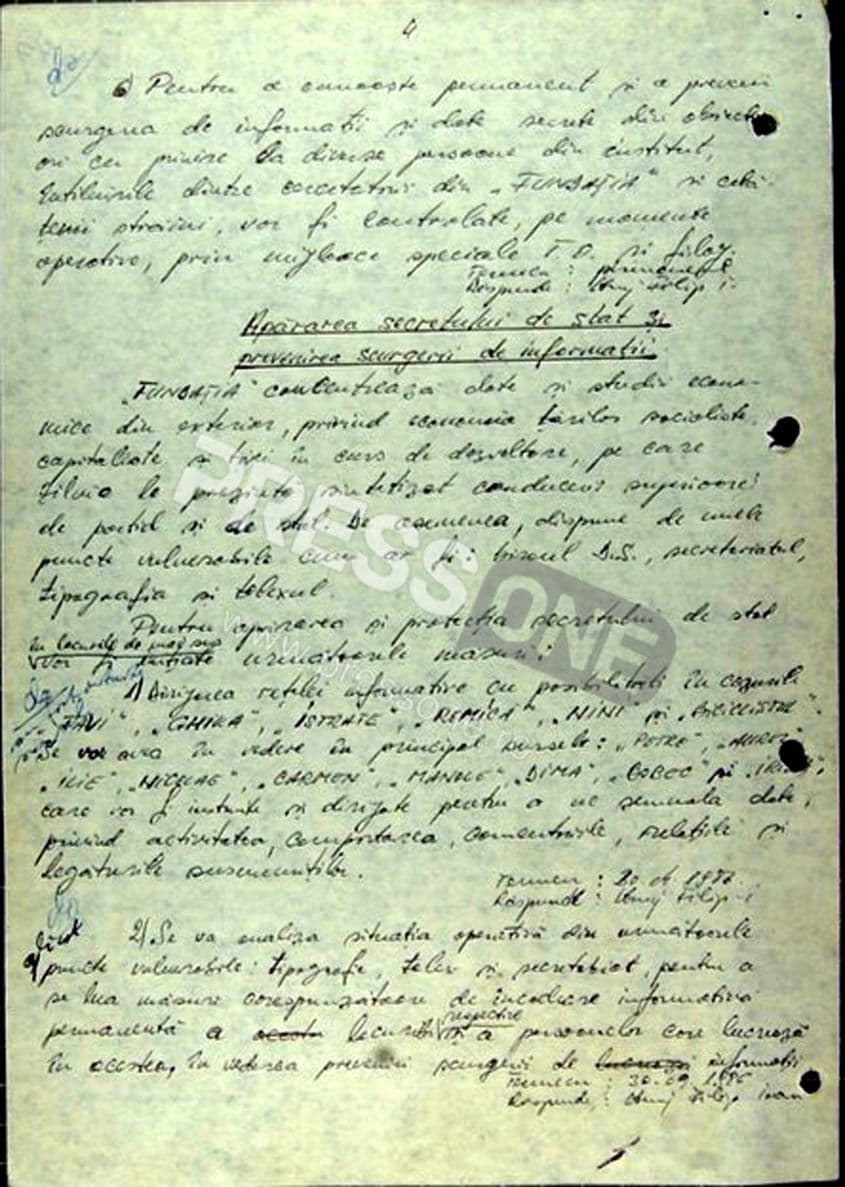 4
6) Pentru a cunoaște permanent și a preveni
scurgerea de informații și date secrete din
ori cu privire la diverse persoane din institut,
întîlnirile dintre cercetătorii din „FUNDAȚIA" și cetă-
țenii străini, vor fi controlate, pe momente
operative, prin mijloace speciale T.O. și filaj.
Termen : permanent
Răspunde :
Apărarea secretului de stat și
prevenirea scurgerii de informații.
„FUNDAȚIA" concentrează date și studii econo-
mice din exterior, privind economia țărilor socialiste,
capitaliste și țări în curs de dezvoltare, pe care
le prezintă sintetizat conducerii superioare
de partid și de stat. De asemenea, dispune de unele
puncte vulnerabile cum ar fi : biroul D.S., secretariatul,
tipografia și telexul.
Pentru apărarea și protecția secretului de stat
în locurile de mai sus
vor fi inițiate următoarele măsuri :
1) Dirijarea rețelei informative cu posibilități în cazurile
„FAVI", „GHIKA", „ISTRATE", „REMICA", „NINI" și
Se vor avea în vedere în principal sursele : „PETRE",
„ILIE", „NICOLAE", „CARMEN", „MANOLE", „DIMA", și
care vor fi instruite și dirijate pentru a ne semnala date,
privind activitatea, comportarea, comentariile, relațiile și
legăturile susnumiților.
Termen :
Răspunde :
2) Se va analiza situația operativă din următoarele
puncte vulnerabile : tipografie, telex și secretariat, pentru a
se lua măsuri corespunzătoare de încadrare informativă
respectiv
permanentă a acestor și a persoanelor care lucrează
în acestea, în vederea prevenirii scurgerii de informații
Termen : 30.09.1986
Răspunde :
PRESSONE